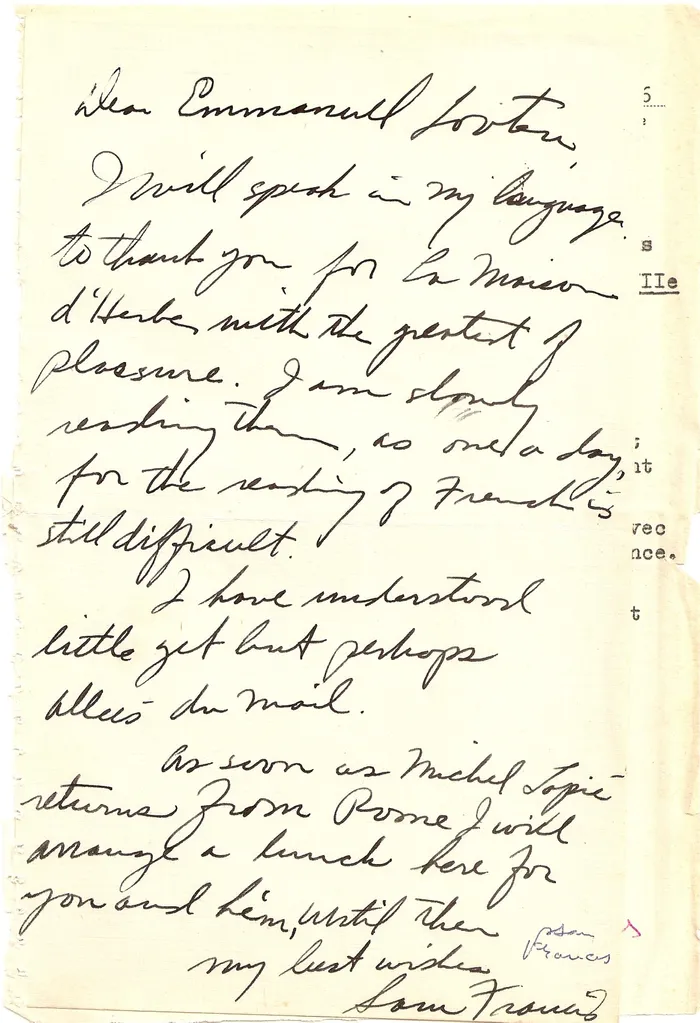 Dear Emmanuel Looten,
I will speak in my language
to thank you for La Maison
d'Herbes with the greatest of
pleasure. I am slowly
reading them, as one a day,
for the reading of French is
still difficult.
I have understood
little yet but perhaps
allées du mail.
As soon as Michel Tapié
returns from Rome I will
arrange a lunch here for
you and him, until then
my best wishes
Sam Francis
Sam
Francis
6
s
IIe
;
nt
vec
nce.
t